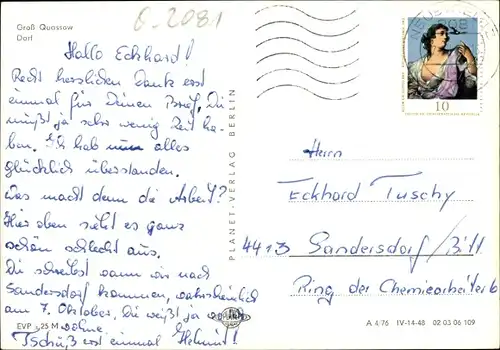 6-2081
Groß Quassow
Dorf
Hallo Eckhard!
Recht herzlichen Dank erst
einmal für Deinen Brief, Du
mußt ja sehr wenig Zeit ha-
ben. Ich hab nun alles
glücklich überstanden.
Was macht denn die Arbeit?
Hier oben sieht es ganz
schön schlecht aus.
Du schreibst wann wir nach
Sandersdorf kommen, wahrscheinlich
am 7. Oktober, Du weißt ja wo
wohne.
Tschüß erst einmal Helmut!
EVP -,25 M
PLANET-VERLAG BERLIN
10
Herrn
Eckhard Tuschy
4413 Sandersdorf/Bitt
Ring der Chemiearbeiter
A 4/76 IV-14-48 02 03 06 109